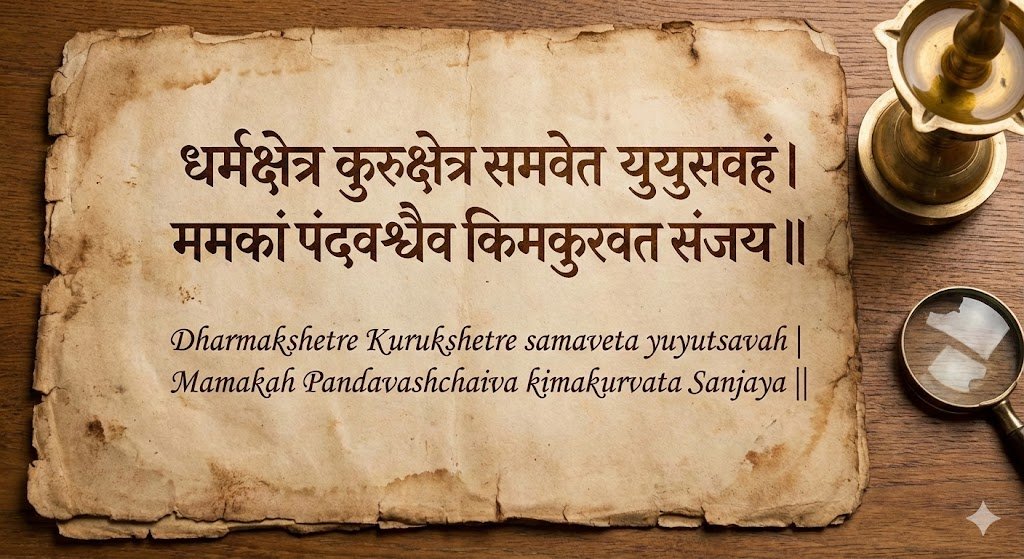 धर्मक्षेत्र कुरुक्षेत्र समवेत युयुसवहं।
ममकां पंदवश्चैव किमकुरवत संजय॥
Dharmakshetre Kurukshetre samaveta yuyutsavah |
Mamakah Pandavashchaiva kimakurvata Sanjaya ||